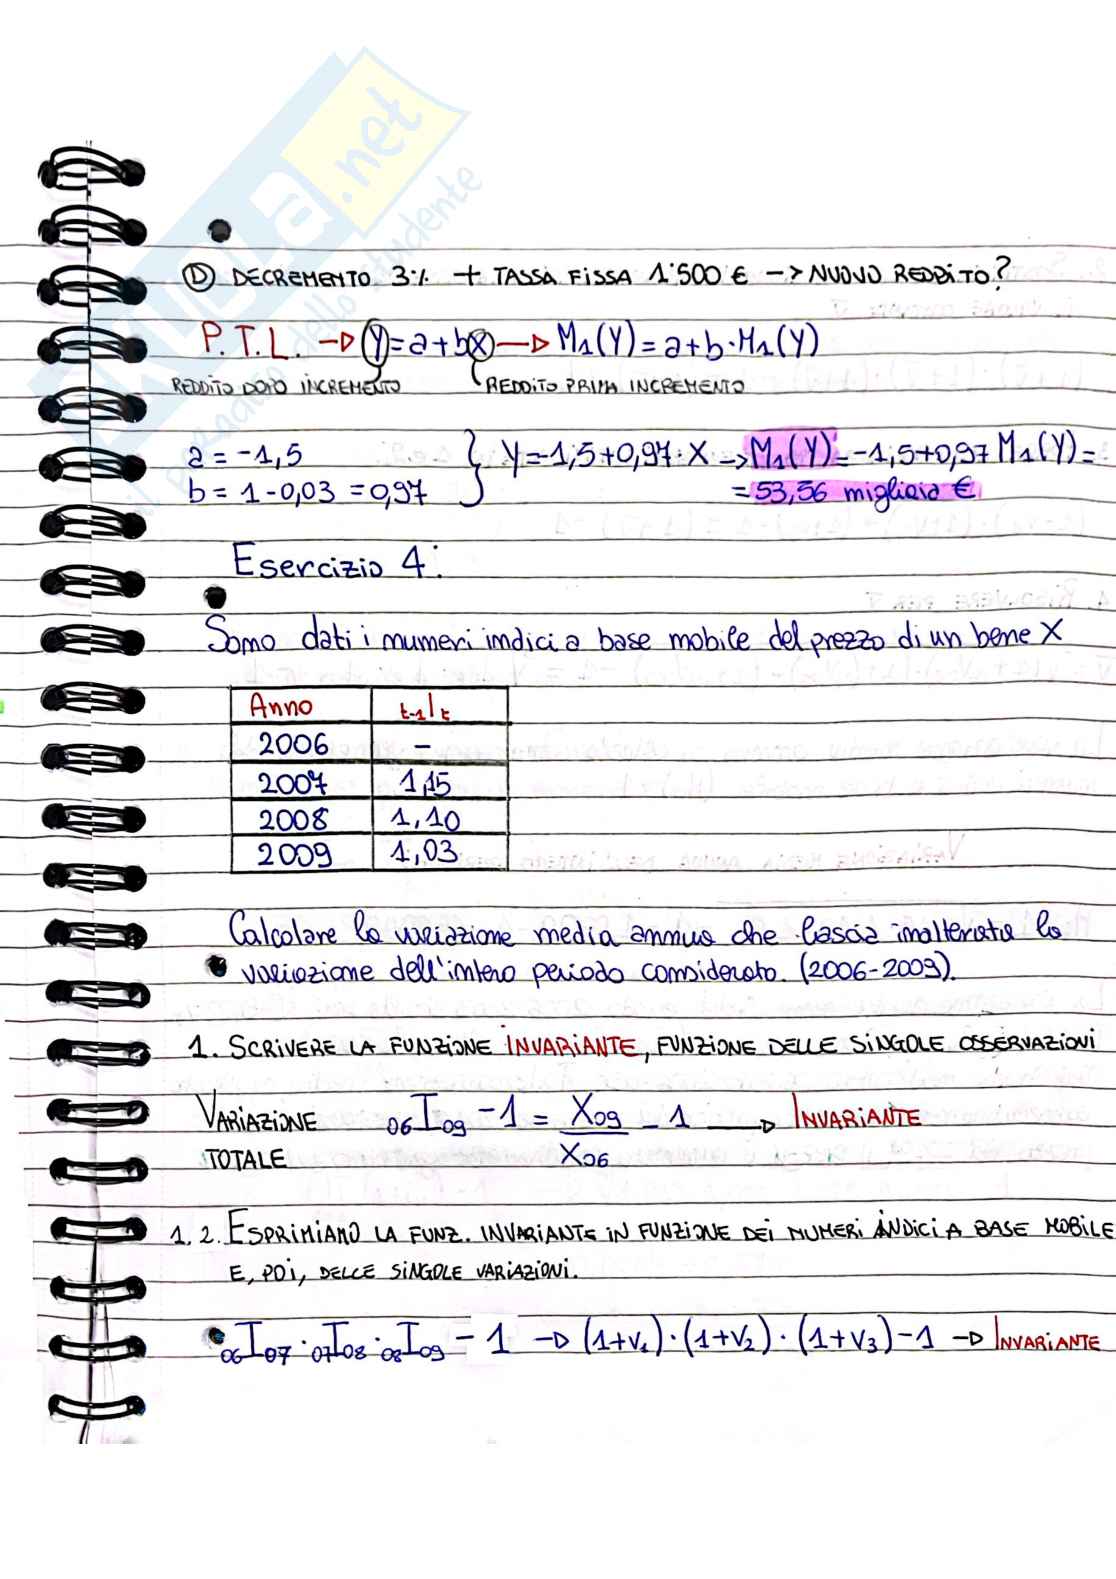 D DECREMENTO 3% + TASSA FISSA 1'500 € -> NUOVO REDDITO?
P.T.L. -> Y = a+bX -> M₁(Y) = a+b·M₁(Y)
REDDITO DOPO INCREMENTO REDDITO PRIMA INCREMENTO
a = -1,5
b = 1-0,03 = 0,97
} Y=-1,5+0,97·X -> M₁(Y)=-1,5+0,97 M₁(Y)=
= 53,56 migliaia €
Esercizio 4:
Sono dati i numeri indici a base mobile del prezzo di un bene X
Anno t-1|t
2006 -
2007 1,15
2008 1,10
2009 1,03
Calcolare la variazione media annua che lascia inalterata la
variazione dell'intero periodo considerato. (2006-2009).
1. SCRIVERE LA FUNZIONE INVARIANTE, FUNZIONE DELLE SINGOLE OSSERVAZIONI
VARIAZIONE TOTALE ₀₆I₀₉ - 1 = X₀₉/X₀₆ - 1 -> INVARIANTE
1.2. ESPRIMIAMO LA FUNZ. INVARIANTE IN FUNZIONE DEI NUMERI INDICI A BASE MOBILE
E, POI, DELLE SINGOLE VARIAZIONI.
₀₆I₀₇ · ₀₇I₀₈ · ₀₈I₀₉ - 1 -> (1+V₁)·(1+V₂)·(1+V₃)-1 -> INVARIANTE
.net
dello studente